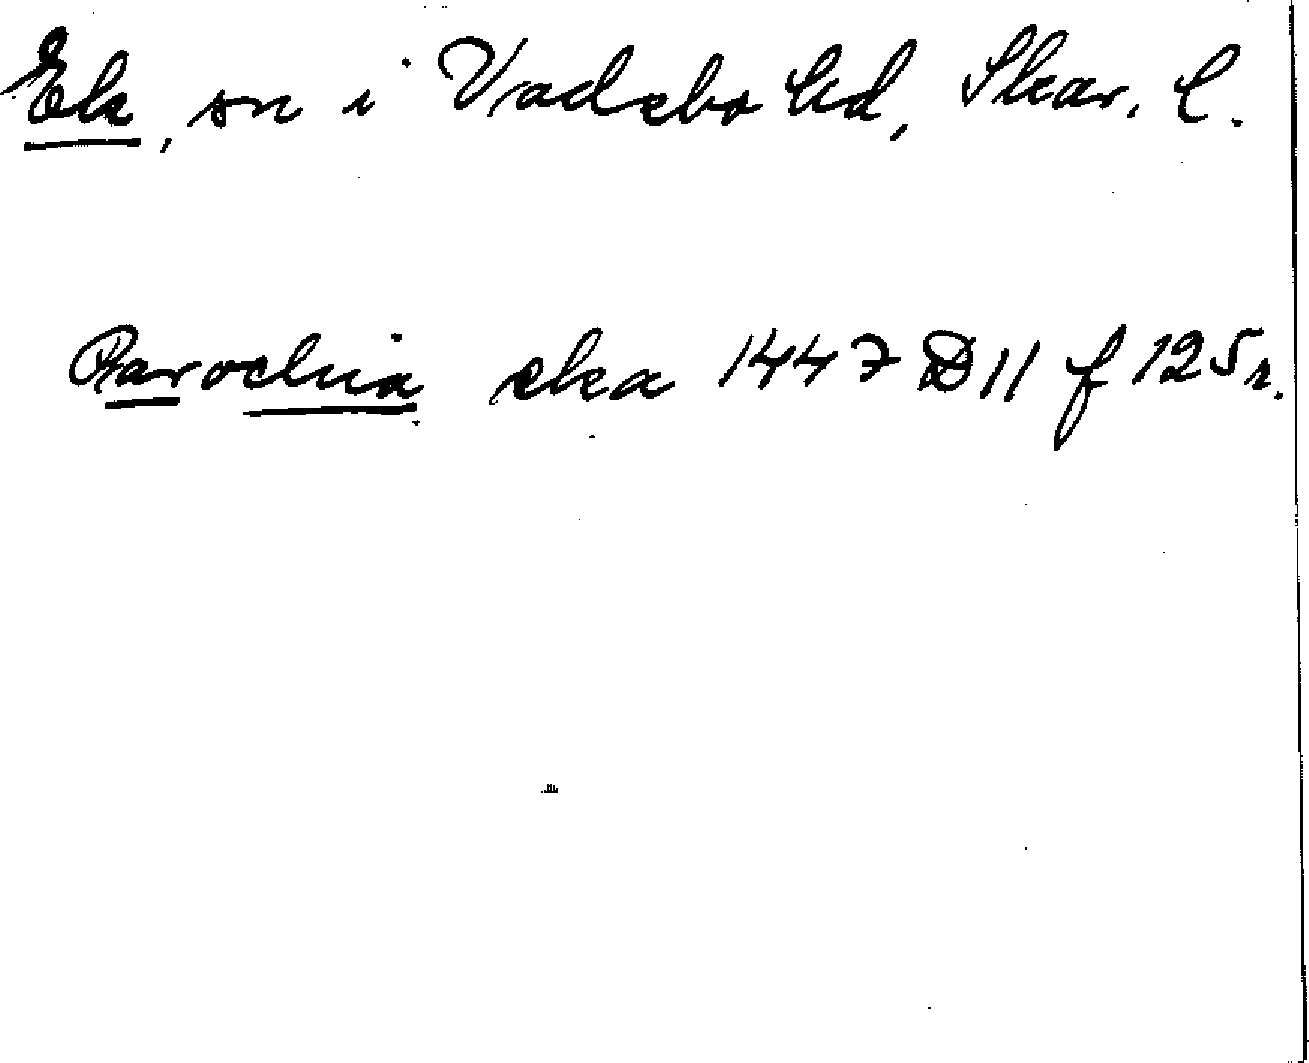 Ek, sn i Vadsbo hd, Skar. l.
Parochia eka 1447 D 11 f 125 r.